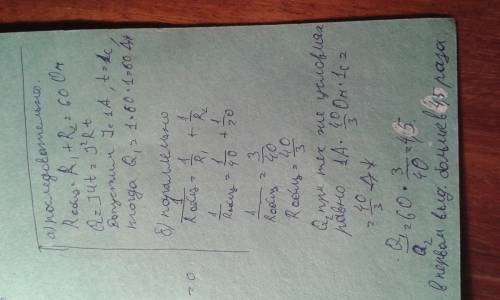 а) последовательно.
Rобщ = R₁ + R₂ = 60 Ом
Q = IUt = I²Rt
допустим I = 1А, t = 1с,
тогда Q₁ = 1·60·1 = 60 Дж
б) параллельно
1/Rобщ = 1/R₁ + 1/R₂
1/Rобщ = 1/40 + 1/20
1/Rобщ = 3/40
Rобщ = 40/3
Q₂ при тех же условиях
равно 1А · 40/3 Ом · 1с =
= 40/3 Дж
Q₁/Q₂ = 60 · 3/40 = 4,5.
в первом выд. больше в 4,5 раза
= 0